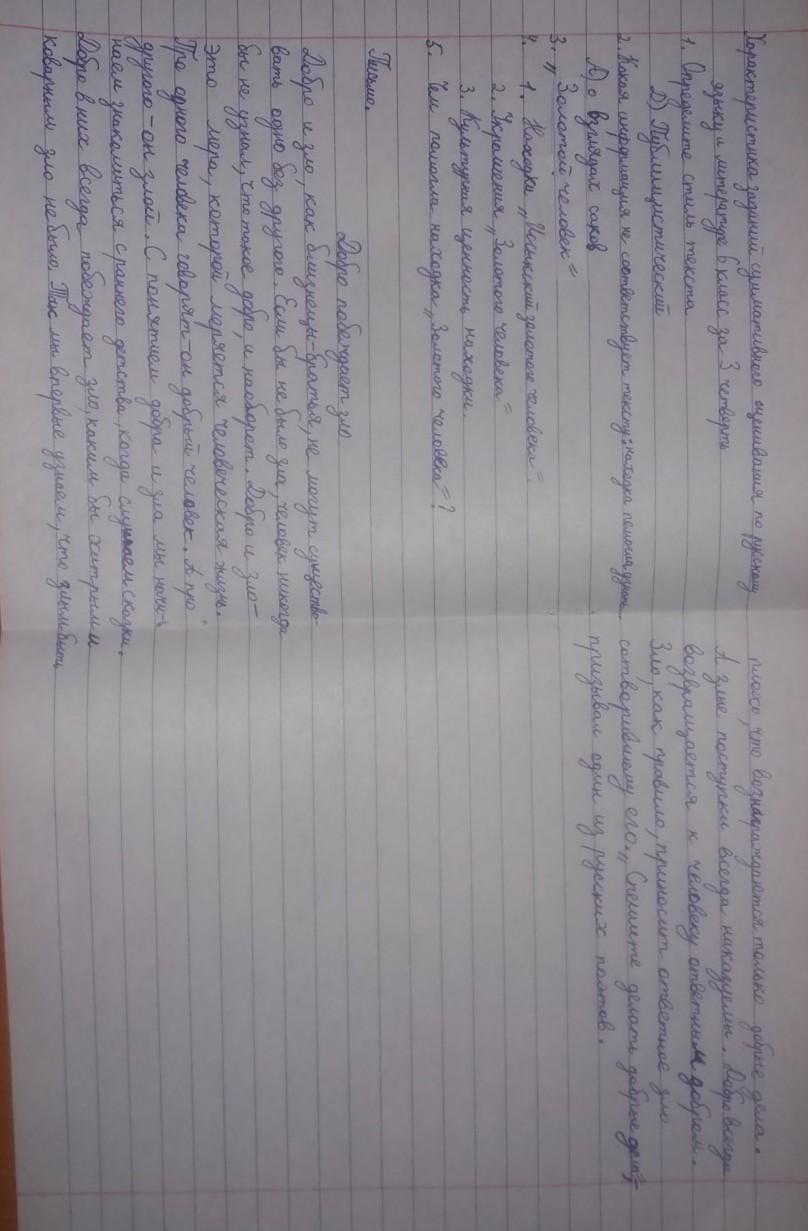 Характеристика заданий суммативного оценивания по русскому
языку и литературе 6 класс за 3 четверть
1. Определите стиль текста
Д) Публицистический
2. Какая информация не соответствует тексту: находка помогла узнать
А) о взглядах саков
3. „Золотой человек"
4. 1. Находка „Иссыкский золотого человека".
2. Украшения „Золотого человека"
3. Культурная ценность находки.
5. Чем помогла находка „Золотого человека"?
Письмо.
Добро побеждает зло
Добро и зло, как близнецы-братья, не могут существо-
вать одно без другого. Если бы не было зла, человек никогда
бы не узнал, что такое добро, и наоборот. Добро и зло-
это мера, которой меряется человеческая жизнь.
Про одного человека говорят-он добрый человек. А про
другого-он злой. С понятием добра и зла мы начи-
наем знакомиться с раннего детства, когда слушаем сказки.
Добро в них всегда побеждает зло, каким бы хитрым и
коварным зло не было. Так мы впервые узнаем, что злым быть
плохо, что вознаграждаются только добрые дела.
А злые поступки всегда наказуемы. Добро всегда
возвращается к человеку ответным добром.
Зло, как правило, приносит ответное зло
сотворившему его. „Спешите делать добрые дела"-
призывал один из русских поэтов.